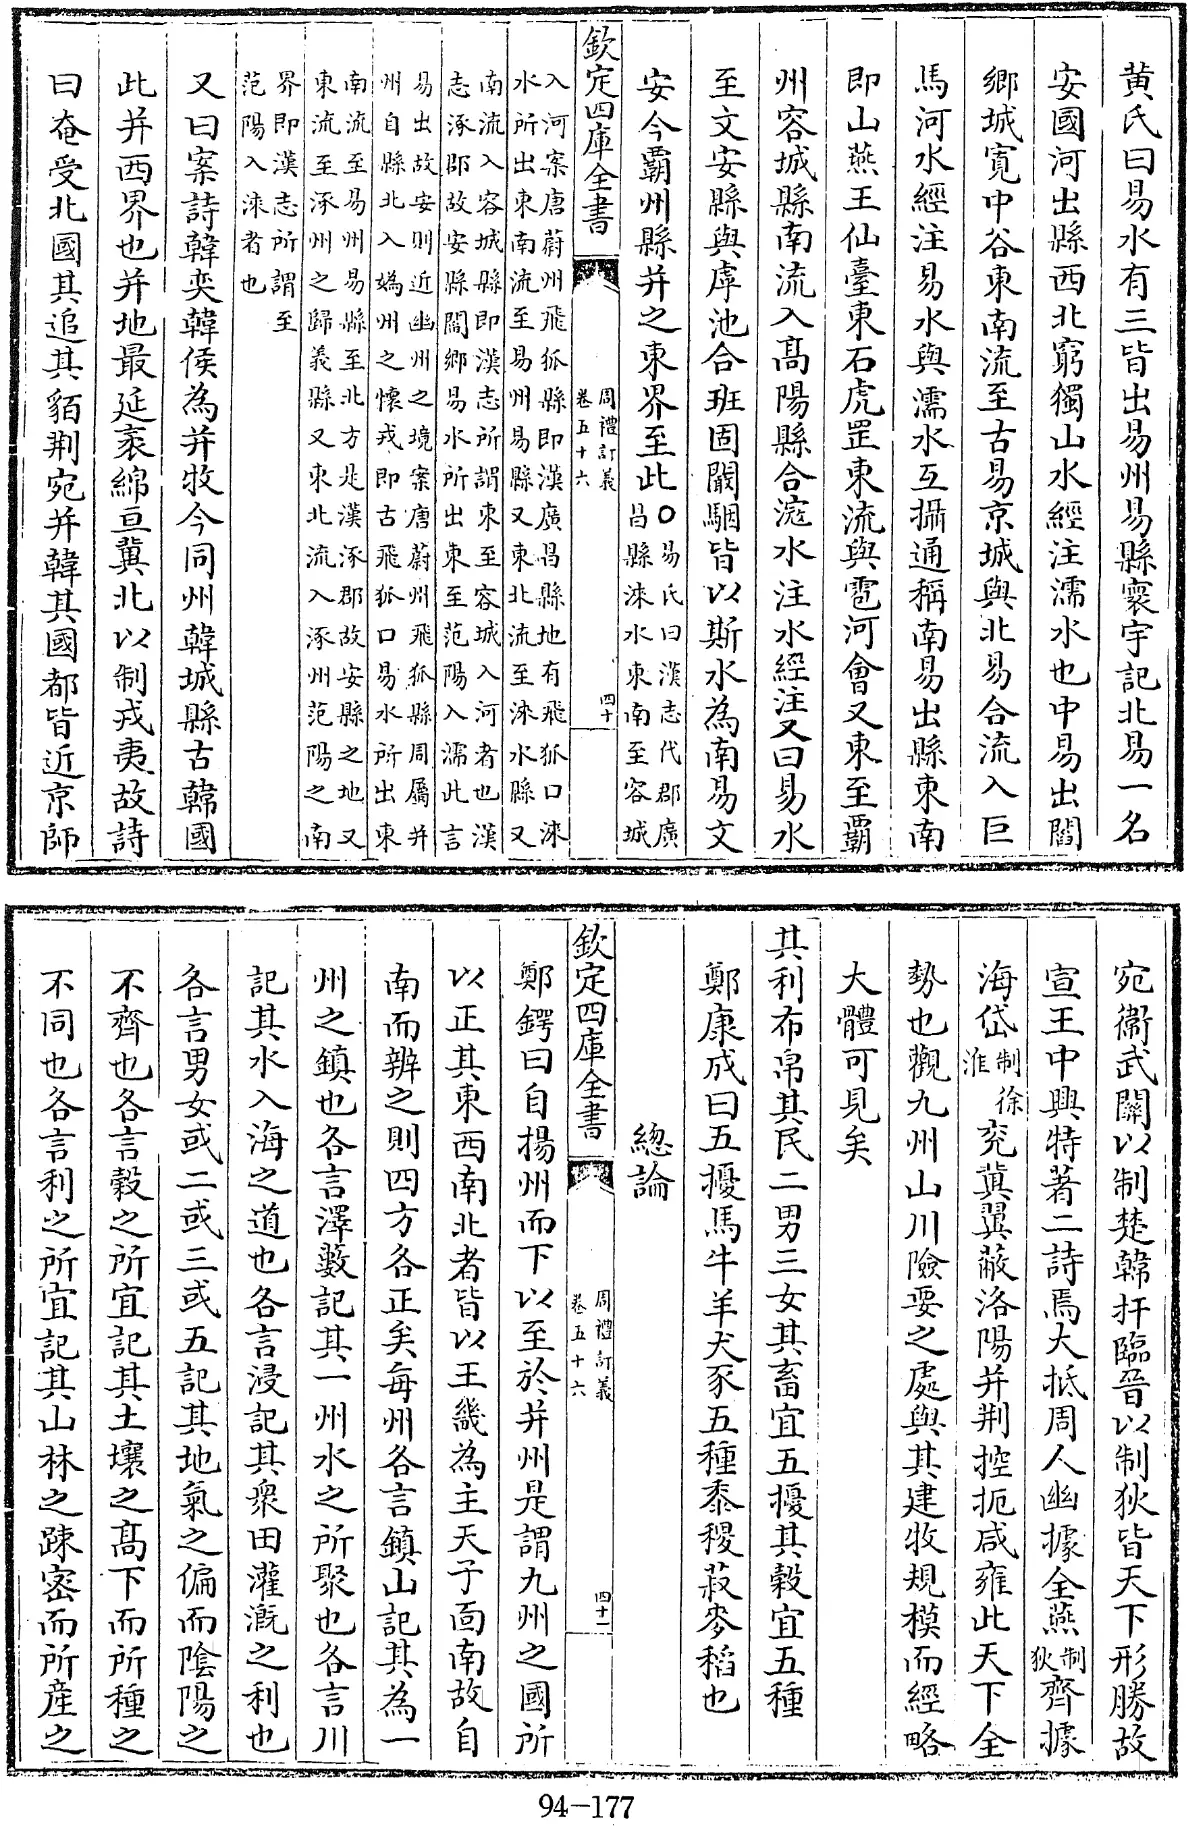 黄氏曰易水有三皆出易州易縣寰宇記北易一名
安國河出縣西北窮獨山水經注濡水也中易出閻
鄉城寛中谷東南流至古易京城與北易合流入巨
馬河水經注易水與濡水互攝通稱南易出縣東南
即山燕王仙臺東石虎罡東流與雹河會又東至霸
州容城縣南流入高陽縣合滱水注水經注又曰易水
至文安縣與虖池合班固闞駰皆以斯水為南易文
安今霸州縣并之東界至此○易氏曰漢志代郡廣
昌縣淶水東南至容城
欽定四庫全書
周禮訂義
卷五十六
四十
入河案唐蔚州飛狐縣即漢廣昌縣地有飛狐口淶
水所出東南流至易州易縣又東北流至淶水縣又
南流入容城縣即漢志所謂東至容城入河者也漢
志涿郡故安縣閻鄉易水所出東至范陽入濡此言
易出故安則近幽州之境案唐蔚州飛狐縣周屬并
州自縣北入媯州之懷戎即古飛狐口易水所出東
南流至易州易縣至北方是漢涿郡故安縣之地又
東流至涿州之歸義縣又東北流入涿州范陽之南
界即漢志所謂至
范陽入淶者也
又曰案詩韓奕韓侯為并牧今同州韓城縣古韓國
此并西界也并地最延袤綿亘冀北以制戎夷故詩
曰奄受北國其追其貊荆宛并韓其國都皆近京師
宛衞武關以制楚韓扞臨晉以制狄皆天下形勝故
宣王中興特著二詩焉大抵周人幽據全燕制狄齊據
海岱制徐淮兖冀翼蔽洛陽并荆控扼咸雍此天下全
勢也觀九州山川險要之處與其建牧規模而經略
大體可見矣
其利布帛其民二男三女其畜宜五擾其穀宜五種
鄭康成曰五擾馬牛羊犬豕五種黍稷菽麥稻也
總論
欽定四庫全書
周禮訂義
卷五十六
四十一
鄭鍔曰自揚州而下以至於并州是謂九州之國所
以正其東西南北者皆以王畿為主天子面南故自
南而辨之則四方各正矣每州各言鎮山記其為一
州之鎮也各言澤藪記其一州水之所聚也各言川
記其水入海之道也各言浸記其衆田灌漑之利也
各言男女或二或三或五記其地氣之偏而陰陽之
不齊也各言穀之所宜記其土壤之高下而所種之
不同也各言利之所宜記其山林之踈密而所産之
94-177